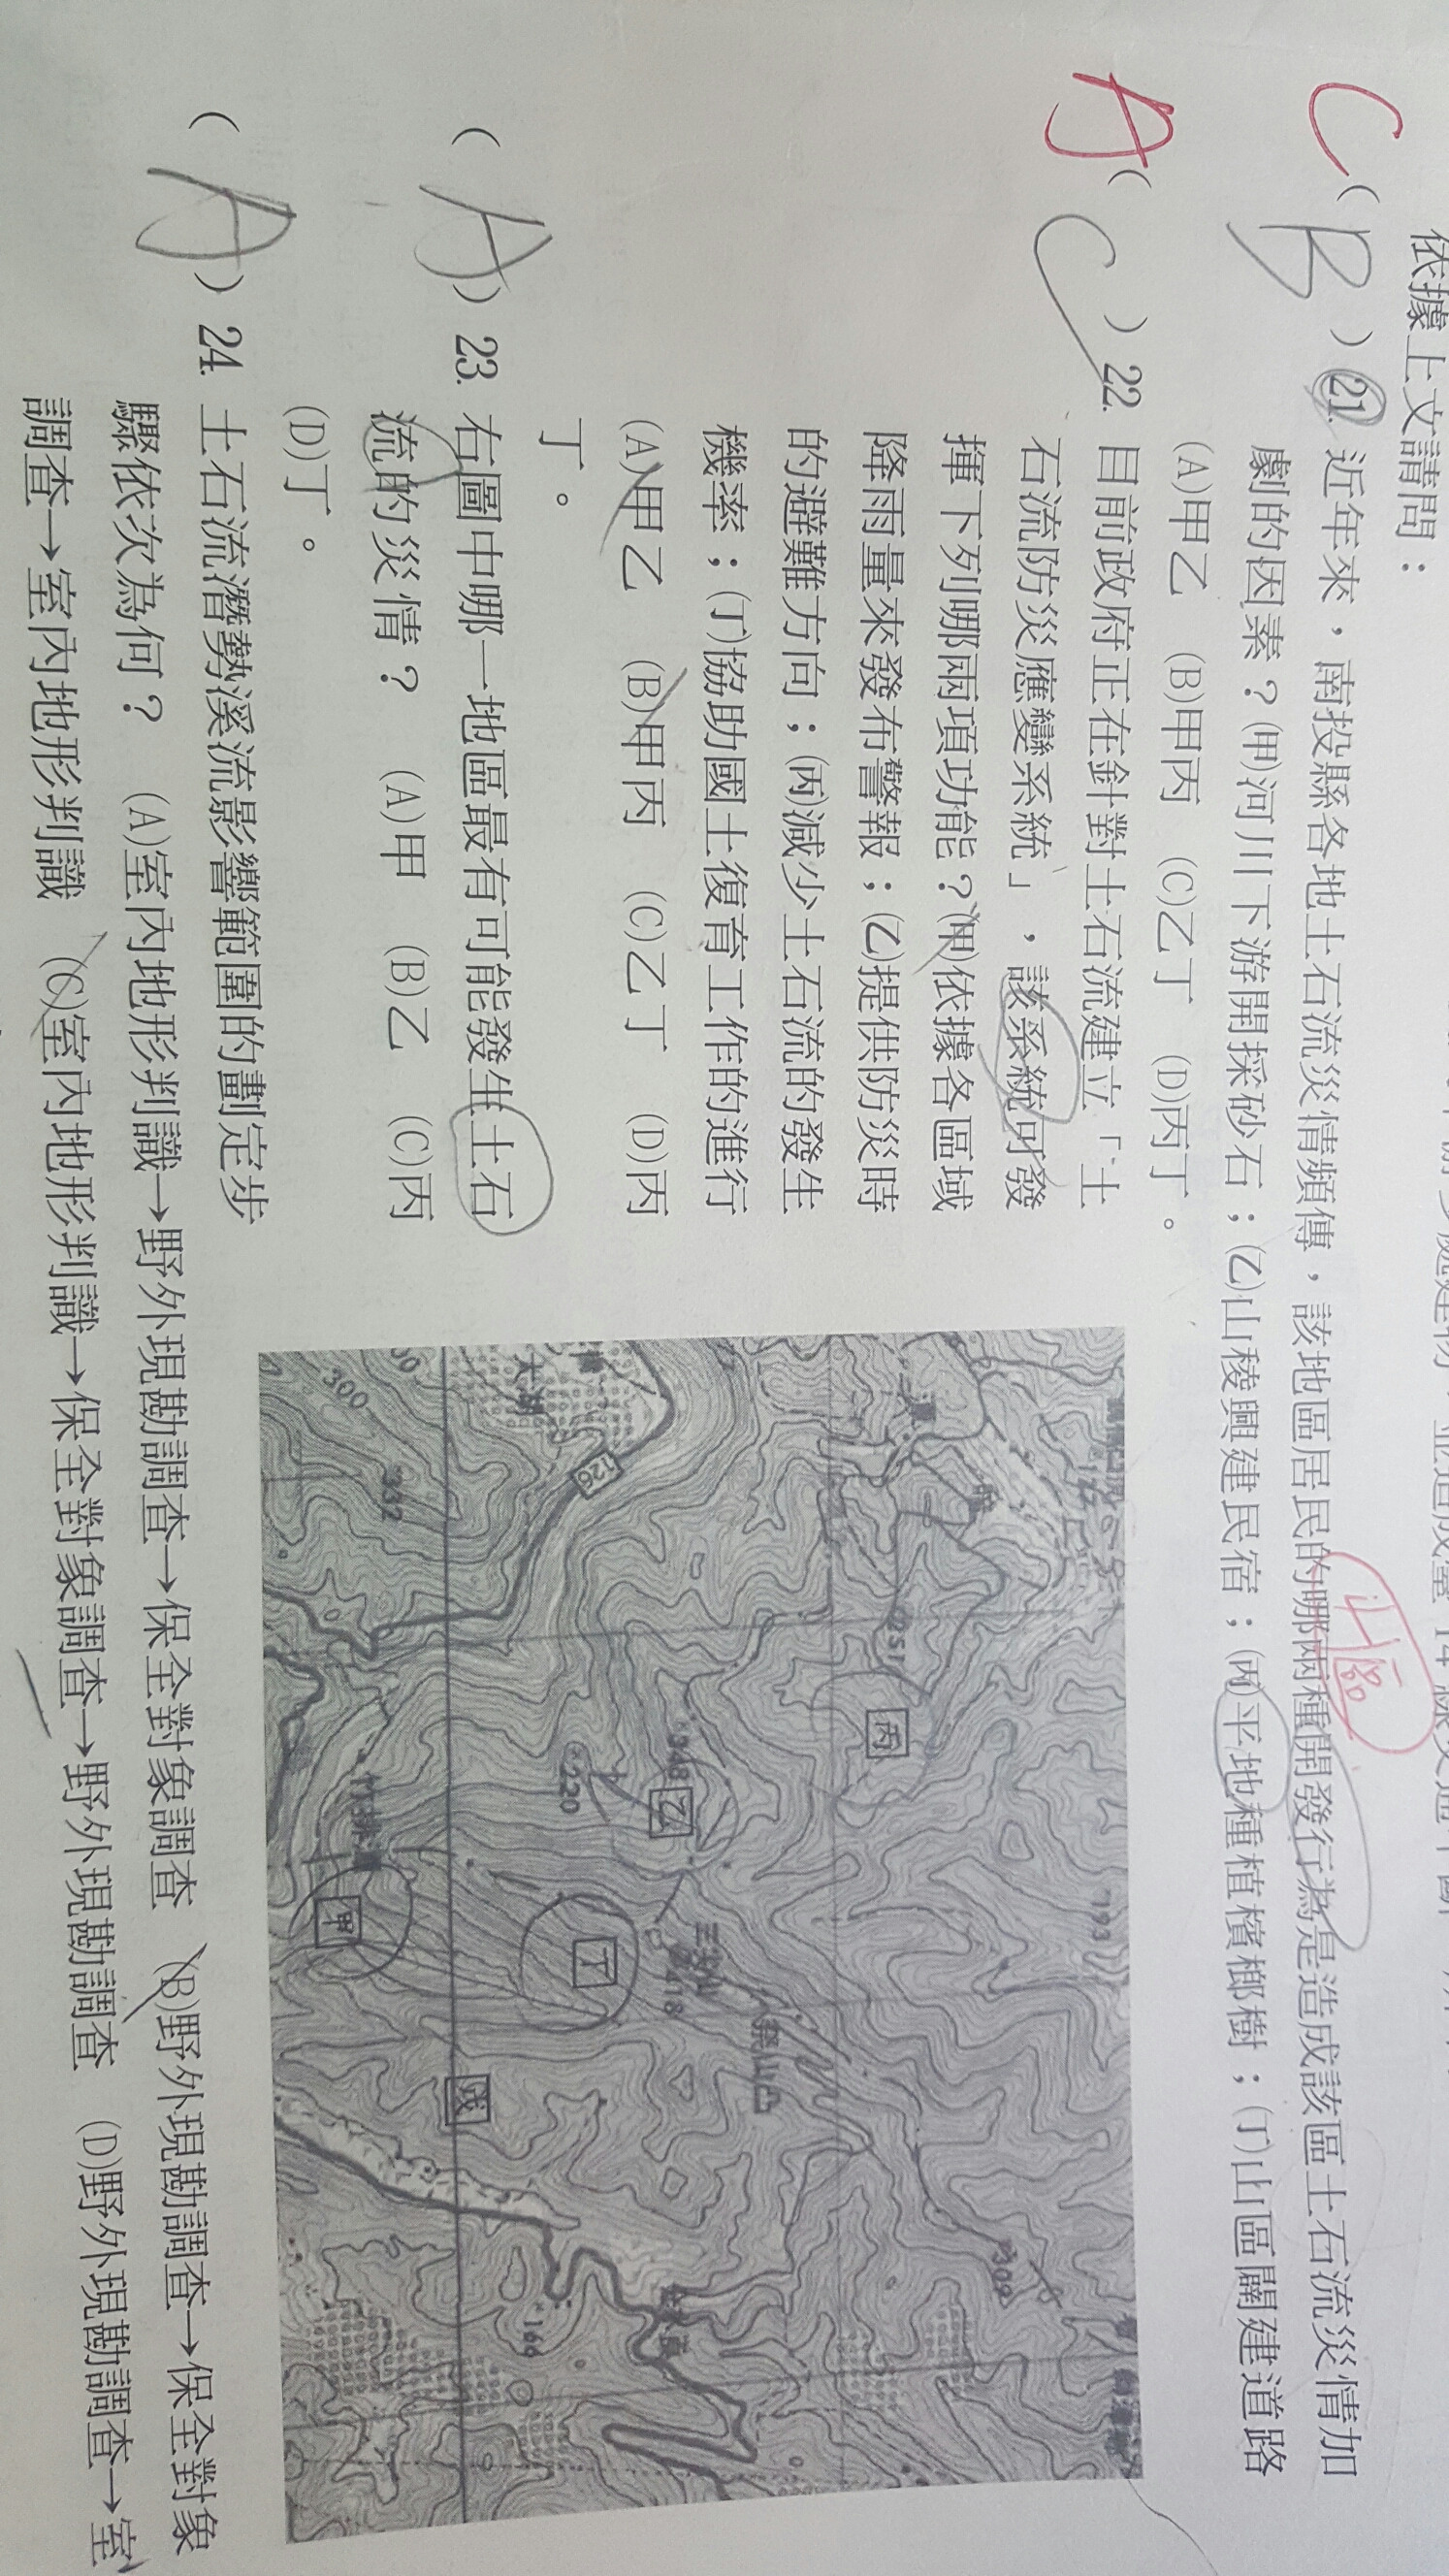 依據上文請問：
C( B )21. 近年來，南投縣各地土石流災情頻傳，該地區居民的哪兩種開發行為是造成該區土石流災情加
山區
劇的因素？(甲)河川下游開採砂石；(乙)山稜興建民宿；(丙)平地種植檳榔樹；(丁)山區闢建道路
(A)甲乙 (B)甲丙 (C)乙丁 (D)丙丁。
A( C )22. 目前政府正在針對土石流建立「土
石流防災應變系統」，該系統可發
揮下列哪兩項功能？(甲)依據各區域
降雨量來發布警報；(乙)提供防災時
的避難方向；(丙)減少土石流的發生
機率；(丁)協助國土復育工作的進行
(A)甲乙 (B)甲丙 (C)乙丁 (D)丙
丁。
( A )23. 右圖中哪一地區最有可能發生土石
流的災情？ (A)甲 (B)乙 (C)丙
(D)丁。
( A )24. 土石流潛勢溪流影響範圍的劃定步
驟依次為何？ (A)室內地形判識→野外現勘調查→保全對象調查 (B)野外現勘調查→保全對象
調查→室內地形判識 (C)室內地形判識→保全對象調查→野外現勘調查 (D)野外現勘調查→室
193
309
251
丙
348
乙
三汊山
418
祭山
126
220
丁
166
大湖
332
300
戊
甲